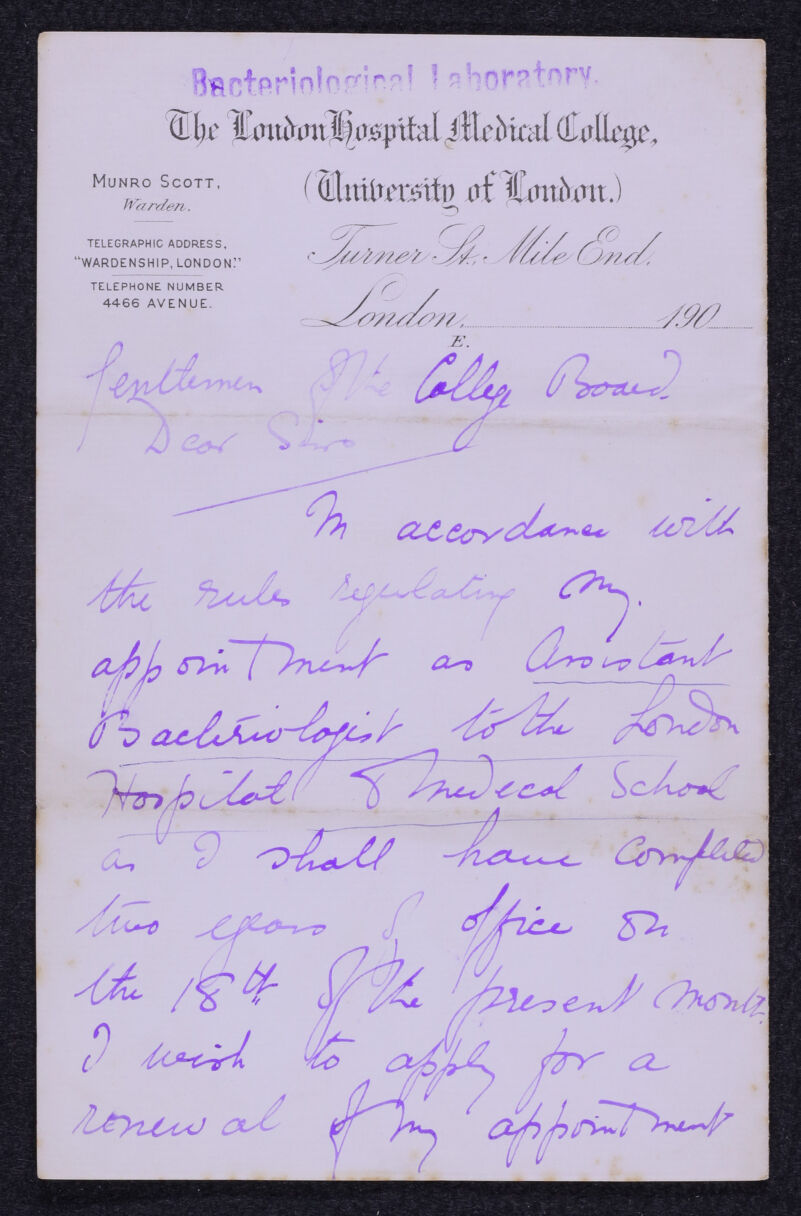 Bacteriological Laboratory.
The London Hospital Medical College,
(University of London.)
MUNRO SCOTT,
Warden.
TELEGRAPHIC ADDRESS,
"WARDENSHIP, LONDON."
TELEPHONE NUMBER
4466 AVENUE.
Turner St., Mile End.
London, 190
E.
Gentlemen of the College Board.
Dear Sirs
In accordance with
the rules regulating my
appointment as Assistant
Bacteriologist to the London
Hospital & Medical School
as I shall have completed
two years of office on
the 18th of the present month.
I wish to apply for a
renewal of my appointment